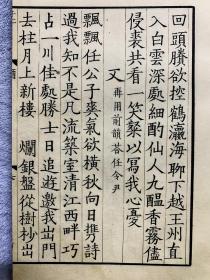 回頭賸欲控鶴瀛海聊下越王州直
入白雲深處細酌仙人九醖香霧儘
侵裘共看一笑粲以寫我心憂
又 再用前韻答任令尹
飄飄任公子爽氣欲橫秋向日携詩
過我知不是凡流築室清江西畔巧
占一川佳處勝士日追遊邀我出門
去柱月上新樓 爛銀盤從樹杪出